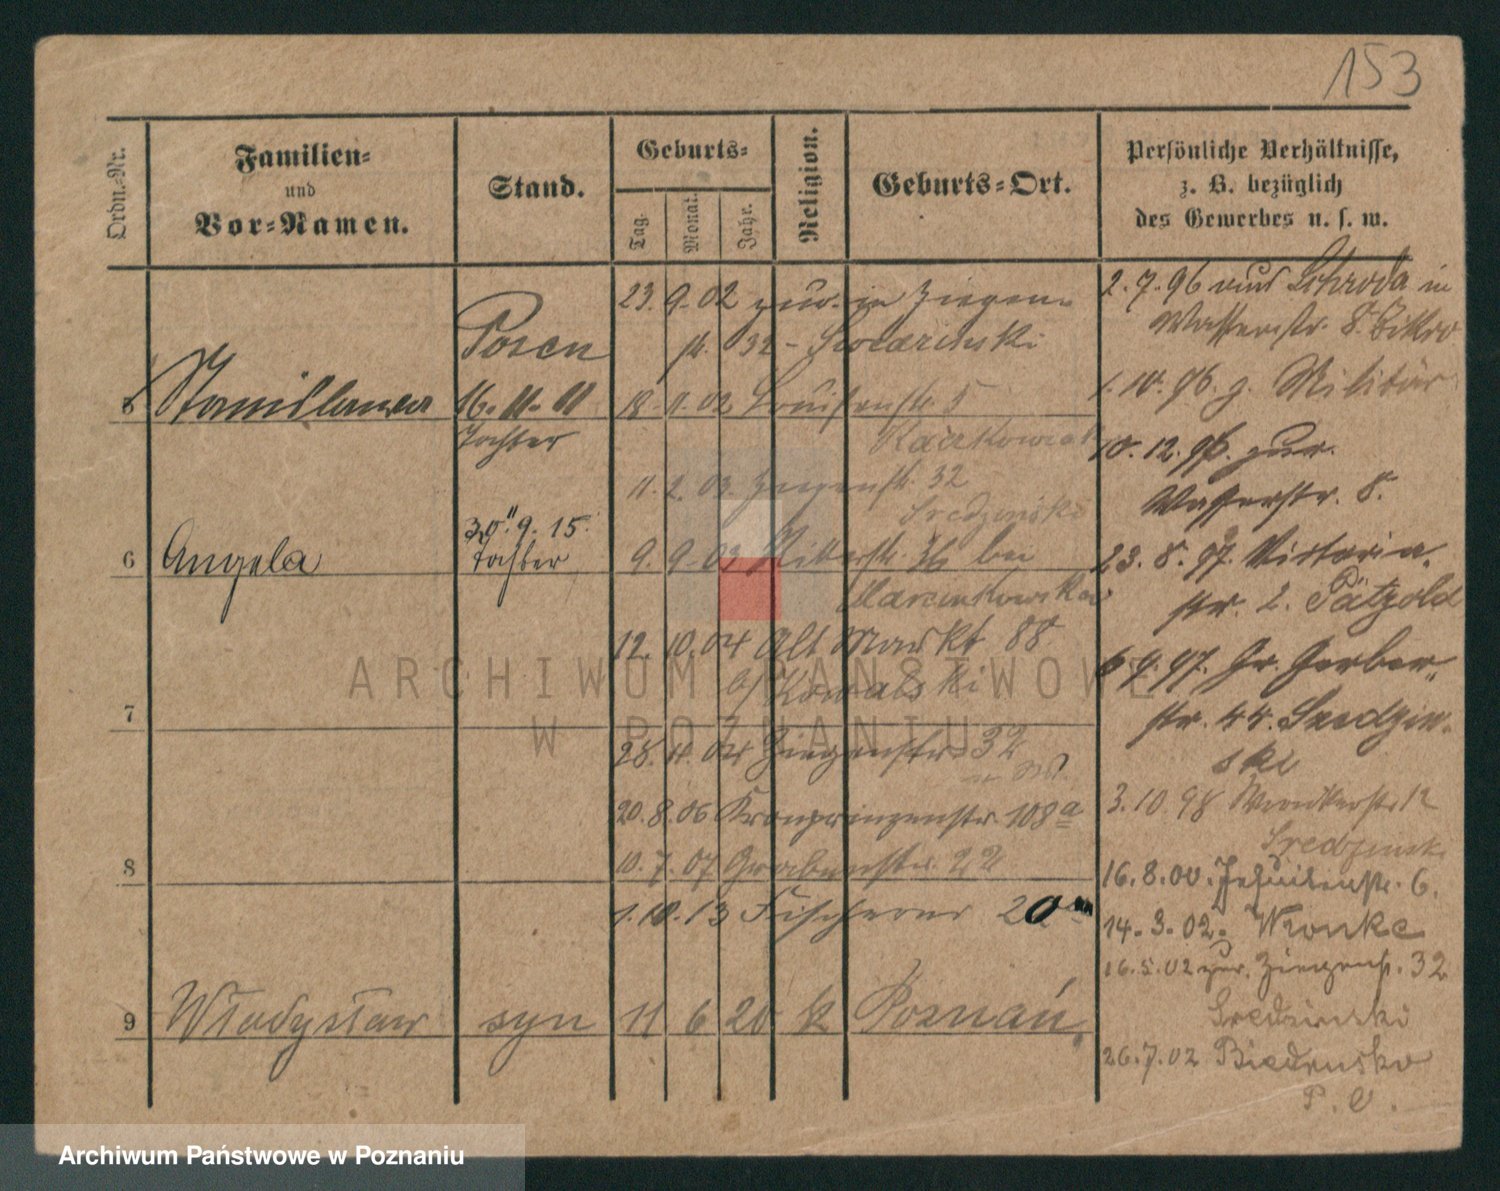 153
Ordn.-Nr.
Familien-
und
Vor-Namen.
Stand.
Geburts-
Tag.
Monat.
Jahr.
Religion.
Geburts-Ort.
Persönliche Verhältnisse,
z. B. bezüglich
des Gewerbes u. s. w.
5
Posen
16. 11. 11
Tochter
6 Angela
30. 9. 15.
Tochter
7
8
9 Władysław syn 11 6 20 k Poznań
23. 9. 02 zur. in Ziegen-
str. 32 -
18. 11. 02 Louisenstr. 5
11. 2. 03. Ziegenstr. 32
Sredzinski
9. 9. 03 Ritterstr. 36 bei
Marcinkowska
12. 10. 04 Alt Markt 88
b/ Kowalski
28. 11. 04 Ziegenstr. 32
20. 8. 06 Kronprinzenstr. 108a
10. 7. 07 Grabenstr. 22
1. 10. 13 Fischerei 20
2. 7. 96 aus Schroda in
Wasserstr. 8.
1. 10. 96 z. Militär
10. 12. 96. zur.
Wasserstr. 8.
23. 8. 97. Victoria-
str. 2. Pätzold
6. 9. 97. Gr. Gerber-
str. 44. Sredzin-
ski
3. 10. 98 Wronkerstr. 12
Sredzinski
16. 8. 00. Jesuitenstr. 6.
14. 3. 02. Wronke
16. 5. 02 zur. Ziegenstr. 32
Sredzinski
26. 7. 02 Biedrusko
P. O.
ARCHIWUM PAŃSTWOWE
W POZNANIU
Archiwum Państwowe w Poznaniu